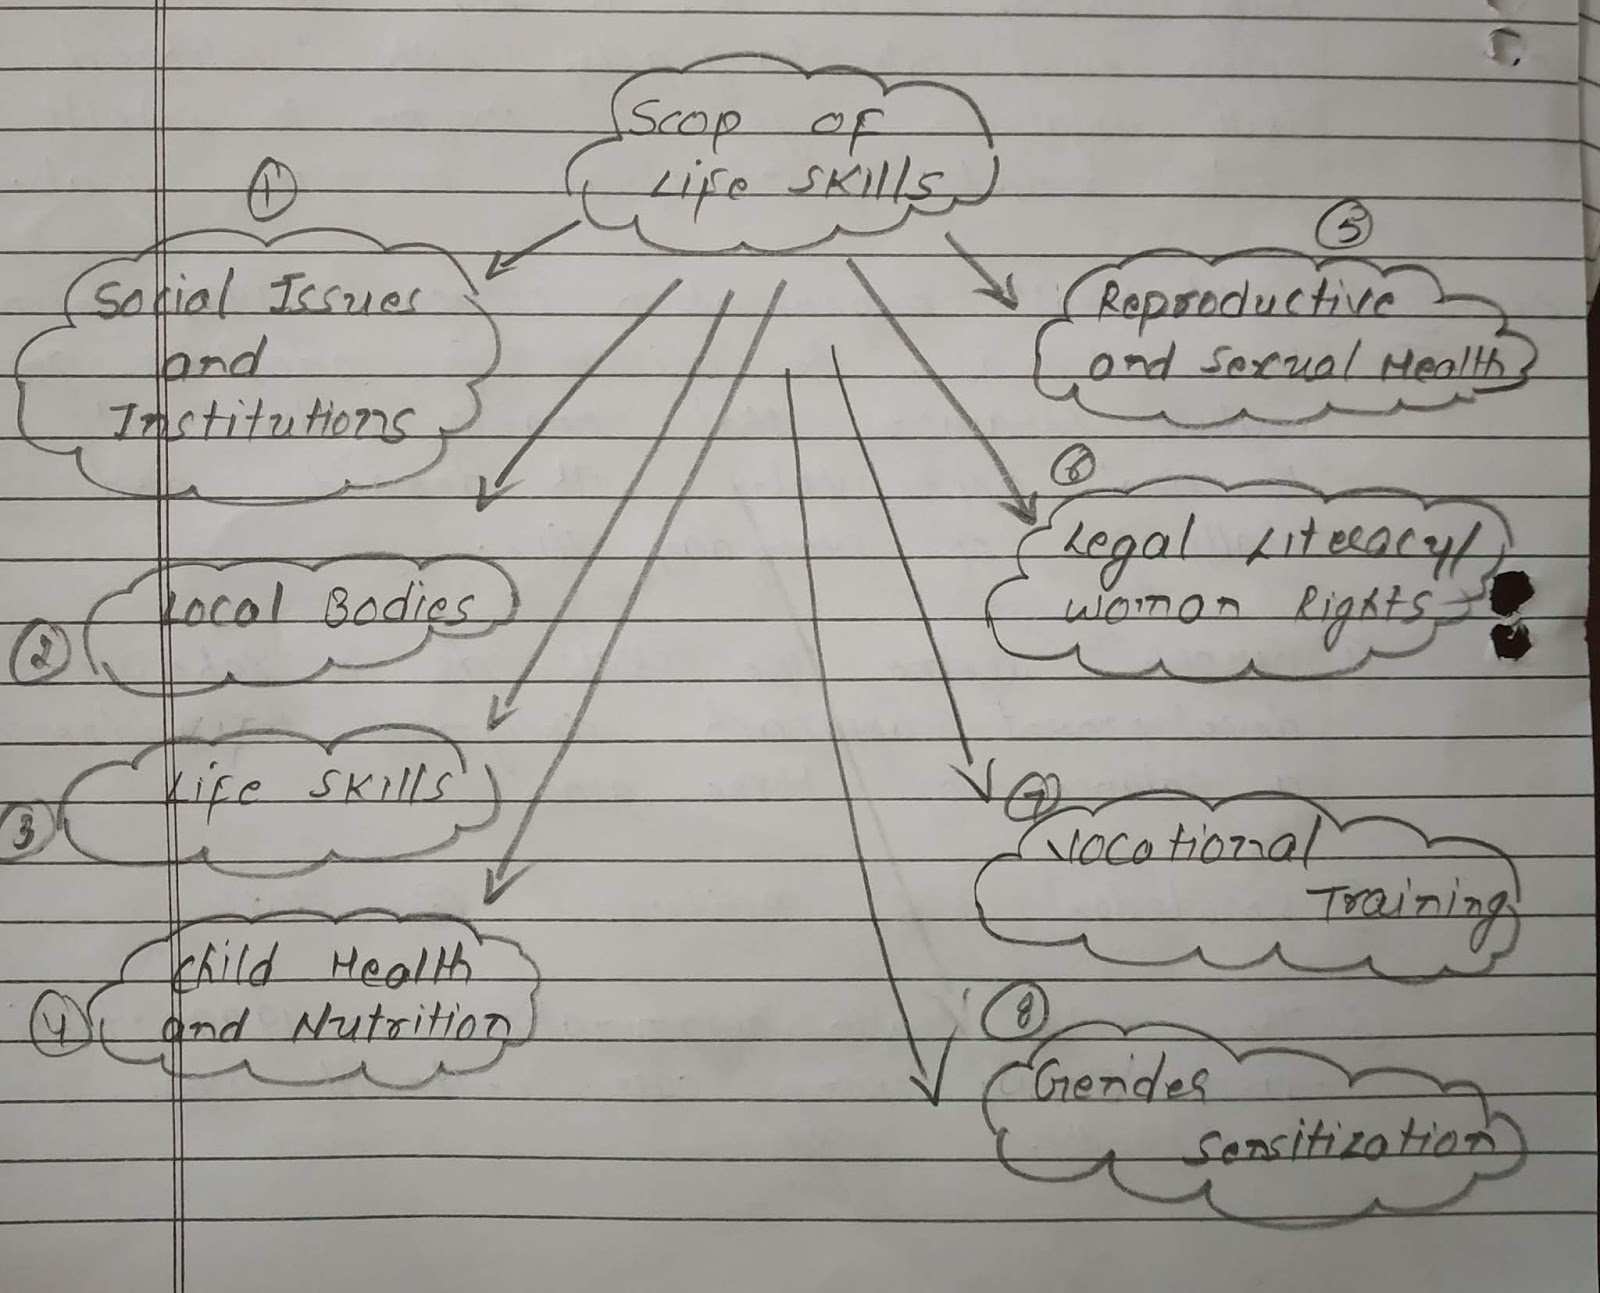 Scop of
Life Skills
1
Social Issues
and
Institutions
2
Local Bodies
3
Life Skills
4
Child Health
and Nutrition
5
Reproductive
and Sexual Health
6
Legal Literacy/
Woman Rights
7
Vocational
Training
8
Gender
Sensitization